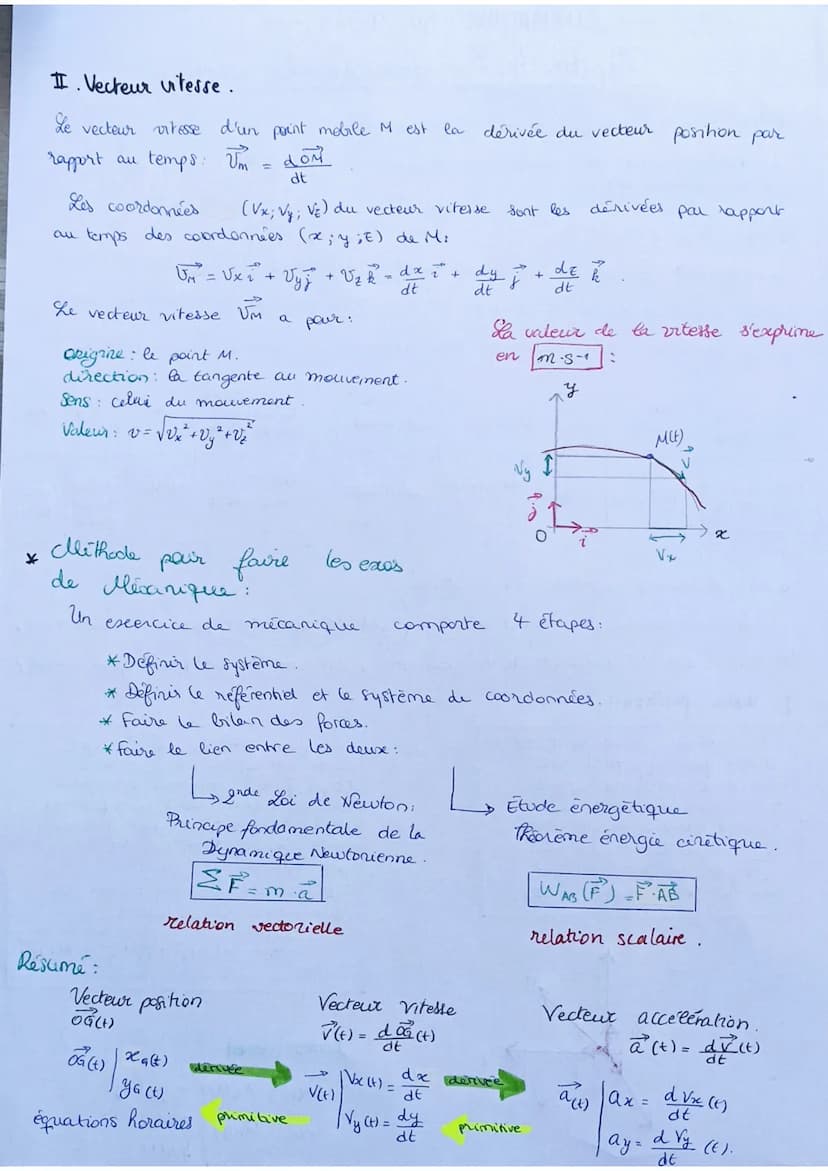 II. Vecteur vitesse.
Le vecteur vitesse d'un point mobile M est la dérivée du vecteur position par
rapport au temps: \vec{V_m} = \frac{d\vec{OM}}{dt}
Les coordonnées (Vx; Vy; Vz) du vecteur vitesse sont les dérivées par rapport
au temps des coordonnées (x; y; z) de M:
\vec{V_M} = Vx\vec{i} + Vy\vec{j} + Vz\vec{k} = \frac{dx}{dt}\vec{i} + \frac{dy}{dt}\vec{j} + \frac{dz}{dt}\vec{k}.
Le vecteur vitesse \vec{V_M} a pour:
origine: le point M.
direction: la tangente au mouvement.
Sens: celui du mouvement.
Valeur: v = \sqrt{Vx² + Vy² + Vz²}
La valeur de la vitesse s'exprime
en m.s-1 :
y
M(t)
\vec{V}
Vy
\vec{j}
O
\vec{i}
x
Vx
* Méthode pour faire les exos
de Mécanique:
Un exercice de mécanique comporte 4 étapes:
* Définir le système.
* Définir le référentiel et le système de coordonnées.
* Faire le bilan des forces.
* faire le lien entre les deux:
2nde Loi de Newton:
Principe fondamentale de la
Dynamique Newtonienne.
Σ\vec{F} = m.\vec{a}
relation vectorielle
Etude énergétique
théorème énergie cinétique.
W_{AB}(\vec{F}) = \vec{F}.\vec{AB}
relation scalaire.
Résumé:
Vecteur position
\vec{OG}(t)
\vec{OG}(t) | x_G(t)
y_G(t)
équations horaires
dérivée
primitive
Vecteur vitesse
\vec{V}(t) = \frac{d\vec{OG}}{dt}(t)
\vec{V}(t) | Vx(t) = \frac{dx}{dt}
Vy(t) = \frac{dy}{dt}
dérivée
primitive
Vecteur accelération.
\vec{a}(t) = \frac{d\vec{V}}{dt}(t)
\vec{a}(t) | ax = \frac{dVx}{dt}(t)
ay = \frac{dVy}{dt}(t).